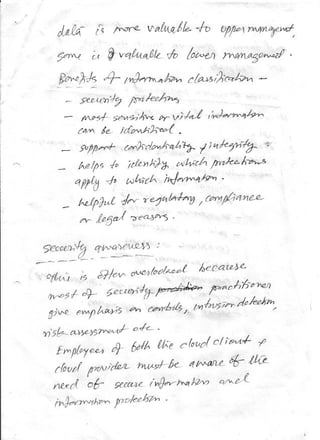 data is more valuable to upper managemet,
some is valuable to lower management.
Benefits of information classification -
- security protecting
- most sensitive or vital information
can be identified.
- support confidentiality, & integrity &
- helps to identify which protections
apply to which information.
- helpful for regulatory, compliance
or legal reasons.
Security awareness :
This is often overlooked because
most of security practitioner
give emphasis on controls, intrusion detection,
risk assessment etc.
Employees of both the cloud client &
cloud provider must be aware of the
need of secure information and
information protection.